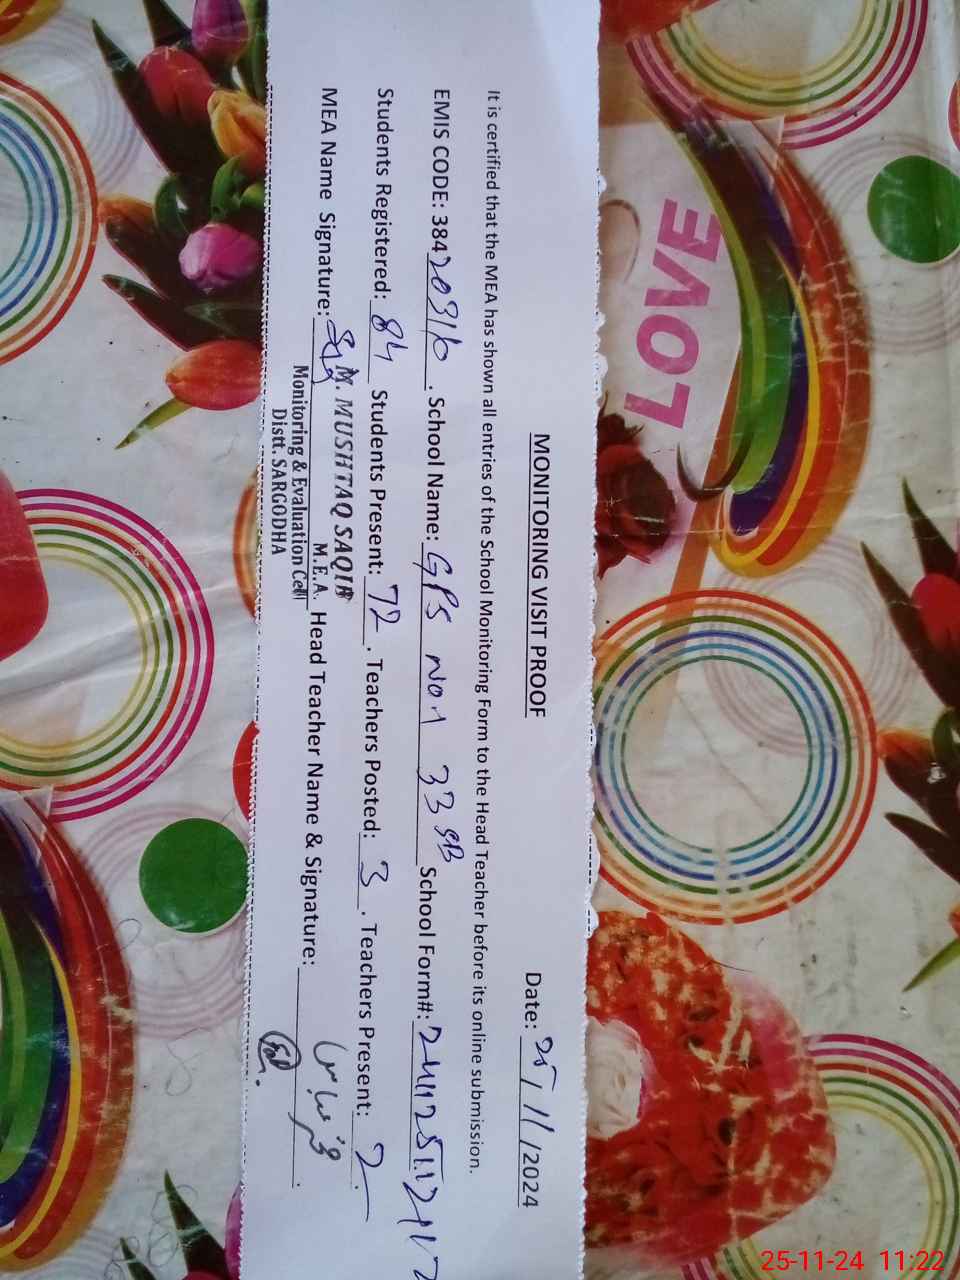 MONITORING VISIT PROOF
Date: 25/11/2024
It is certified that the MEA has shown all entries of the School Monitoring Form to the Head Teacher before its online submission.
EMIS CODE: 38420310. School Name: GPS No1 33 SB School Form#:
Students Registered: 84 Students Present: 72. Teachers Posted: 3. Teachers Present: 2.
MEA Name Signature: Head Teacher Name & Signature:
M. MUSHTAQ SAQIB
M.E.A.
Monitoring & Evaluation Cell
Distt. SARGODHA
LOVE
25-11-24 11:22